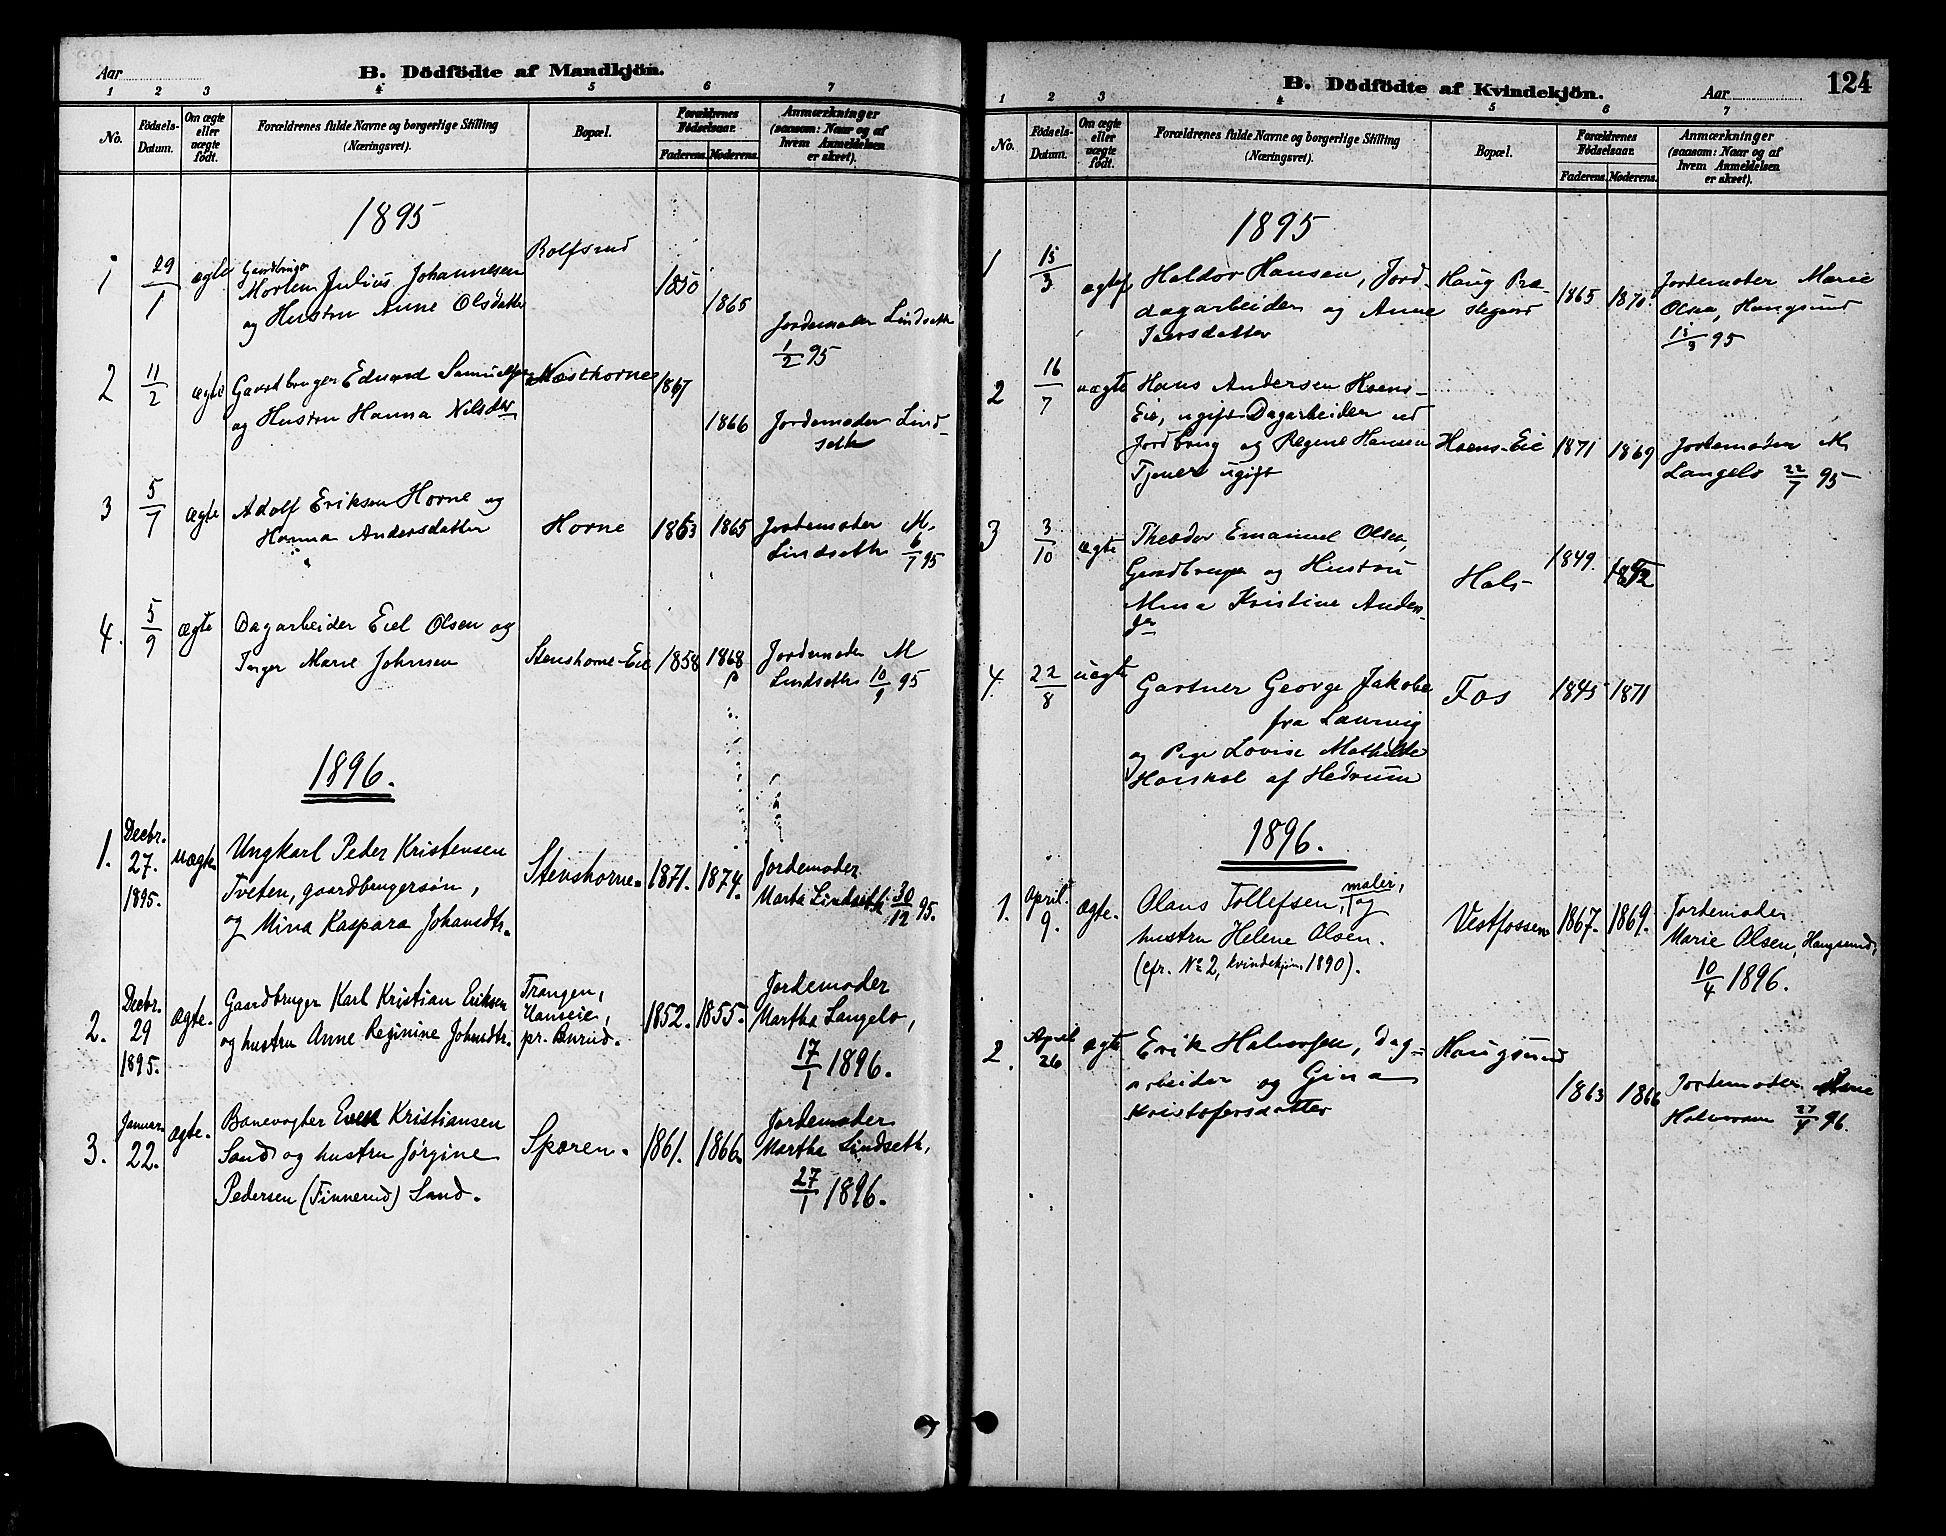 Aar
B. Dödfödte af Mandkjön.
1 2 3 4 5 6 7
No.
Födsels-
Datum.
Om ægte
eller
uægte
født.
Forældrenes fulde Navne og borgerlige Stilling
(Næringsvei).
Bopæl.
Forældrenes
Födselsaar.
Faderens. Moderens.
Anmærkninger
(saasom: Naar og af
hvem Anmeldelsen
er skeet).
1895
1 29/1 ægte Gaardbruger
Morten Julius Johannesen
og Hustru Anne Olsdatter
Rolfsrud
1850 1865
Jordemoder Lindseth
1/2 95
2 11/2 ægte Gaardbruger Edvard Samuelsen
og Hustru Hanna Nilsdtr
1867 1866
Jordemoder Lind-
seth
3 5/7 ægte Adolf Eriksen Horne og
Hanna Andersdatter
Horne 1863 1865
Jordemoder M.
Lindseth 6/7 95
4. 5/9 ægte Dagarbeider Eiel Olsen og
Inger Marie Johnsen
Stenshorne-Eie 1858 1868
Jordemoder M
Lindseth 10/9 95
1896.
1. Decbr.
27.
1895.
uægte Ungkarl Peder Kristensen
Tveten, gaardbrugersøn,
og Mina Kaspara Johansdtr.
Stenshorne. 1871. 1874.
Jordemoder
Martha Lindseth 30/12 95.
2. Decbr.
29
1895.
ægte. Gaardbruger Karl Kristian Eriksen
og hustru Anne Reginine Johnsdtr.
Trangen,
pr. Burud.
1852. 1855.
Jordemoder
Martha Langelo,
17/1 1896.
3. Januar
22.
ægte. Banevogter Kristiansen
Sand og hustru Jørgine
Pedersen (Finnerud) Sand.
Sparen. 1861. 1866.
Jordemoder
Martha Lindseth,
27/1 1896.
B. Dödfödte af Kvindekjön.
Aar
124
1 2 3 4 5 6 7
No.
Födsels-
Datum.
Om ægte
eller
uægte
født.
Forældrenes fulde Navne og borgerlige Stilling
(Næringsvei).
Bopæl.
Forældrenes
Födselsaar.
Faderens. Moderens.
Anmærkninger
(saasom: Naar og af
hvem Anmeldelsen
er skeet).
1895
1 15/3 ægte Haldor Hansen, Jord-
dagarbeider og Anne
Iversdatter
Haug Præ-
stegaard
1865 1870
Jordemoder Marie
Olsen, Haugsund
15/3 95
2 16/7 uægte Hans Andersen Hoens-
Eie, ugift Dagarbeider ved
Jordbrug og Regine Hansen
Tjener ugift
Hoens-Eie 1871 1869
Jordemoder M.
Langelo 22/7 95
3 3/10 ægte Theodor Emanuel Olsen,
Gaardbruger og Hustru
Mina Kristine Anders-
Hals
1849.
4. 22/8 uægte Gartner George Jakobsen
fra Laurvig
og Pige Lovise Mathilde
af Hedrum
Fos 1845 1871
1896.
1. April
9.
ægte. Olaus Tollefsen, maler, og
hustru Helene Olsen.
(cfr. No 2, kvindekjøn 1890).
Vestfossen 1867. 1869.
Jordemoder
Marie Olsen, Haugsund,
10/4 1896.
2. April
26
ægte Erik Halvorsen, Dag-
arbeider og Gina
Kristofersdatter
Haugsund
1863 1866
Jordemoder
Halvorsen 27/4 96.